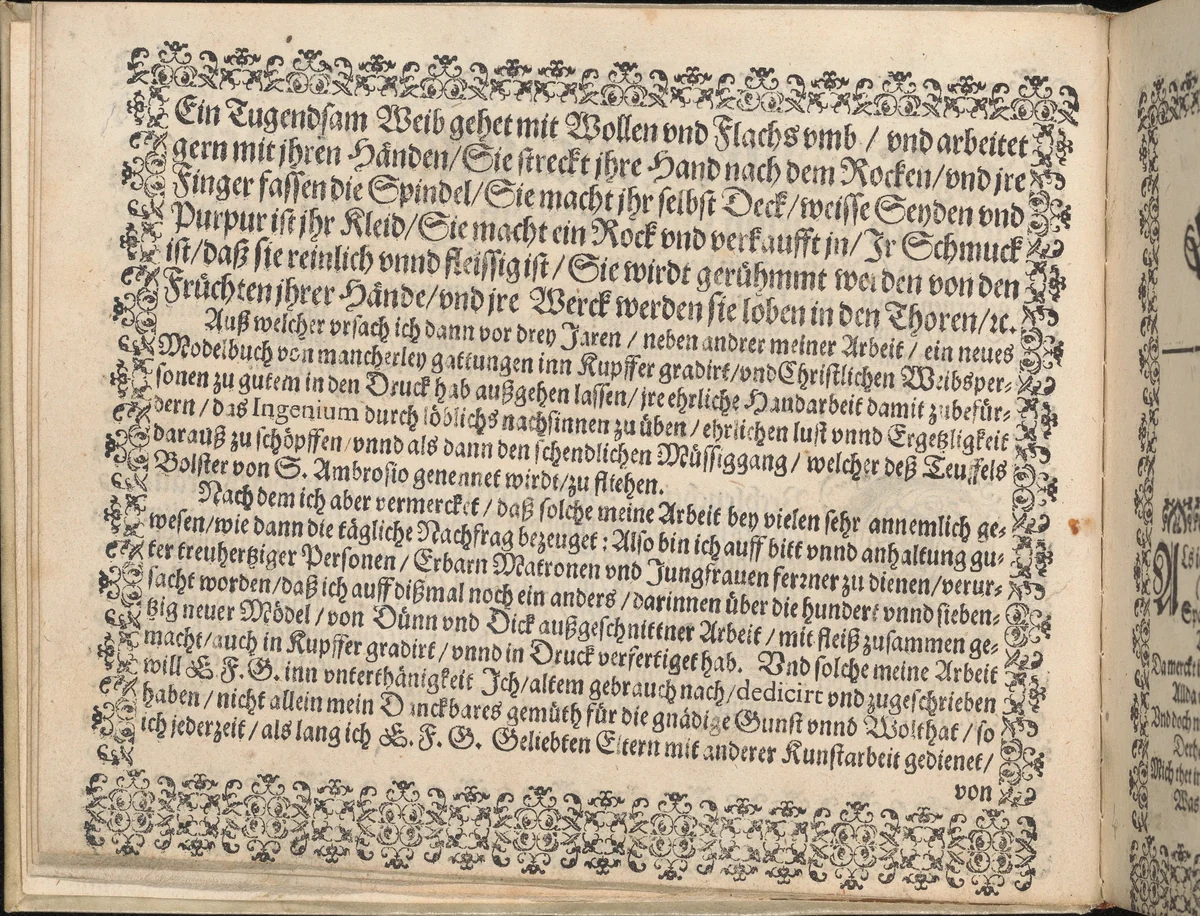 Ein Tugendsam Weib gehet mit Wollen vnd Flachs vmb / vnd arbeitet
gern mit jhren Händen/Sie streckt jhre Hand nach dem Rocken/vnd jre
Finger fassen die Spindel/Sie macht jhr selbst Deck/weisse Seyden vnd
Purpur ist jhr Kleid/Sie macht ein Rock vnd verkaufft jn/Jr Schmuck
ist/daß sie reinlich vnnd fleissig ist/Sie wirdt gerühmmt werden von den
Früchten jhrer Hände/vnd jre Werck werden sie loben in den Thoren/ꝛc.
Auß welcher vrsach ich dann vor drey Jaren / neben andrer meiner Arbeit / ein neues
Modelbuch von mancherley gattungen inn Kupffer gradirt/vnd Christlichen Weibsper-
sonen zu gutem in den Druck hab außgehen lassen/jre ehrliche Handarbeit damit zubefür-
dern/das Ingenium durch löblichs nachsinnen zu üben/ehrlichen lust vnnd Ergetzligkeit
darauß zu schöpffen/vnnd als dann den schendlichen Müssiggang/welcher deß Teuffels
Bolster von S. Ambrosio genennet wirdt/zu fliehen.
Nach dem ich aber vermercket/daß solche meine Arbeit bey vielen sehr annemlich ge-
wesen/wie dann die tägliche Nachfrag bezeuget: Also bin ich auff bitt vnnd anhaltung gu-
ter treuhertziger Personen/Erbarn Matronen vnd Jungfrauen ferrner zu dienen/verur-
sacht worden/daß ich auff dißmal noch ein anders/darinnen über die hundert vnnd sieben-
tzig neuer Mödel/von Dünn vnd Dick außgeschnittner Arbeit/mit fleiß zusammen ge-
macht/auch in Kupffer gradirt/vnnd in Druck verfertiget hab. Vnd solche meine Arbeit
will E. F. G. inn vnterthänigkeit Ich/altem gebrauch nach/dedicirt vnd zugeschrieben
haben/nicht allein mein Danckbares gemüth für die gnädige Gunst vnnd Wolthat/so
ich jederzeit/als lang ich E. F. G. Geliebten Eltern mit anderer Kunstarbeit gedienet/
von
Da merckt
Vnd doch
Mich thet